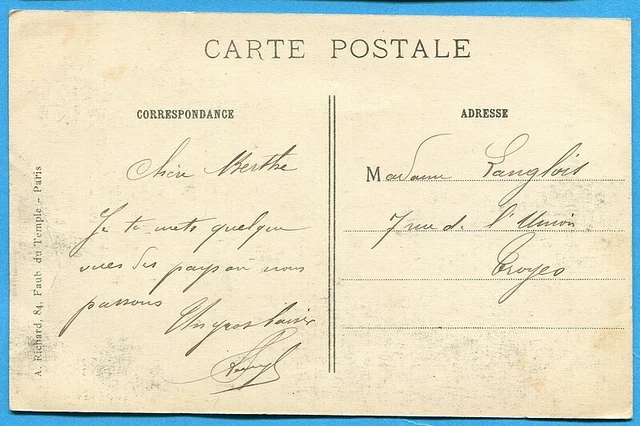 CARTE POSTALE
CORRESPONDANCE
Chère Berthe
Je te mets quelque
vues des pays ou nous
passons
Un gros baiser
ADRESSE
Madame Langlois
7 rue de l'Union
Troyes
A. Richard, 84, Faub du Temple - Paris